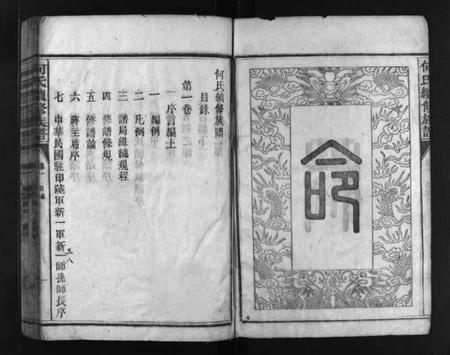 何氏續修族譜
命
何氏續修族譜
目錄
第一卷
序言編上
一 編例
二 凡例
三 譜局組織規程
四 修譜條規
五 修譜論
六 蔣主席序
七 中華民國駐印陸軍新一軍新三八師孫師長序
何氏續修族譜